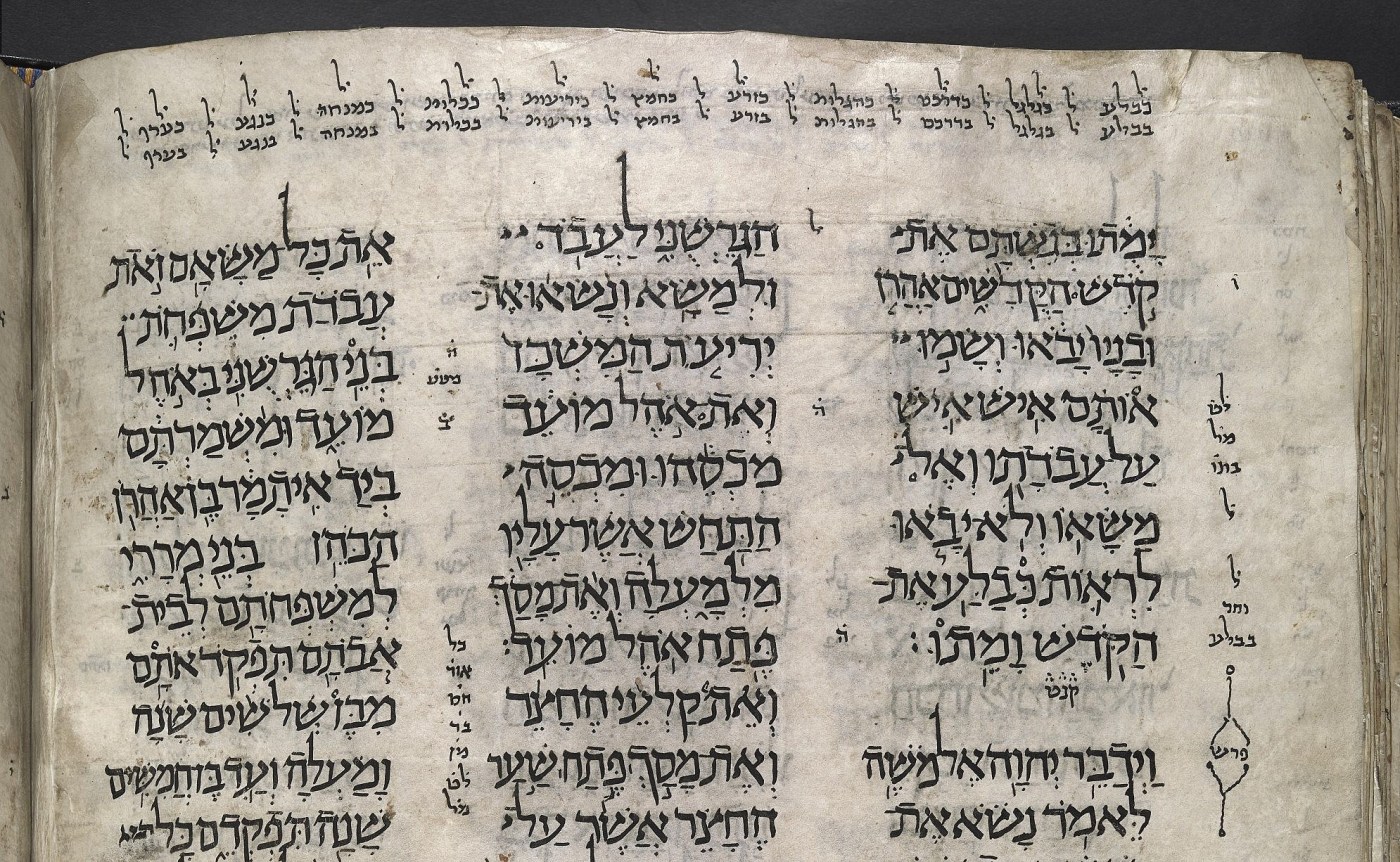 כבלע ל כגלגל ל כדרכם ל כהגלות ל כזרע ל כחמץ ל כיריעות ל ככלות ל כמנחה ל כנגע ל כערף ל
בבלע ל בגלגל ל בדרכם ל בהגלות ל בזרע ל בחמץ ל ביריעות ל בכלות ל במנחה ל בנגע ל בערף ל
ימתו בגשתם את־
קדש הקדשים אהרן
ובניו יבאו ושמו
אותם איש איש
על עבדתו ואל
משאו ולא יבאו
לראות כבלע את־
הקדש ומתו׃
קנט
וידבר יהוה אל משה
לאמר נשא את
ו
מל
ל
ל
וחד
בבלע
פרש
הגרשני לעבד
ולמשא ונשאו את־
יריעת המשכן
ואת אהל מועד
מכסהו ומכסה
התחש אשר עליו
מלמעלה ואת מסך
פתח אהל מועד׃
ואת קלעי החצר
ואת מסך פתח שער
החצר אשר על
ל
ה
ה
את כל משאם ואת
עבדת משפחת
בני הגרשני באהל
מועד ומשמרתם
ביד איתמר בן אהרן
הכהן בני מררי
למשפחתם לבית־
אבתם תפקד אתם
מבן שלשים שנה
ומעלה ועד בן חמשים
שנה תפקדם כל
כל
מן